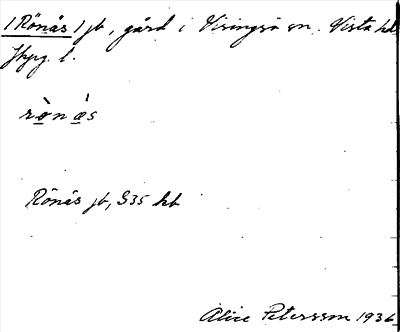 /Rönås/ jb, gård i Visingsö sn. Vista hd
Jkpg. l.
rö̀nǻs
Rönås jb, S35 kb
Alice Petersson 1936